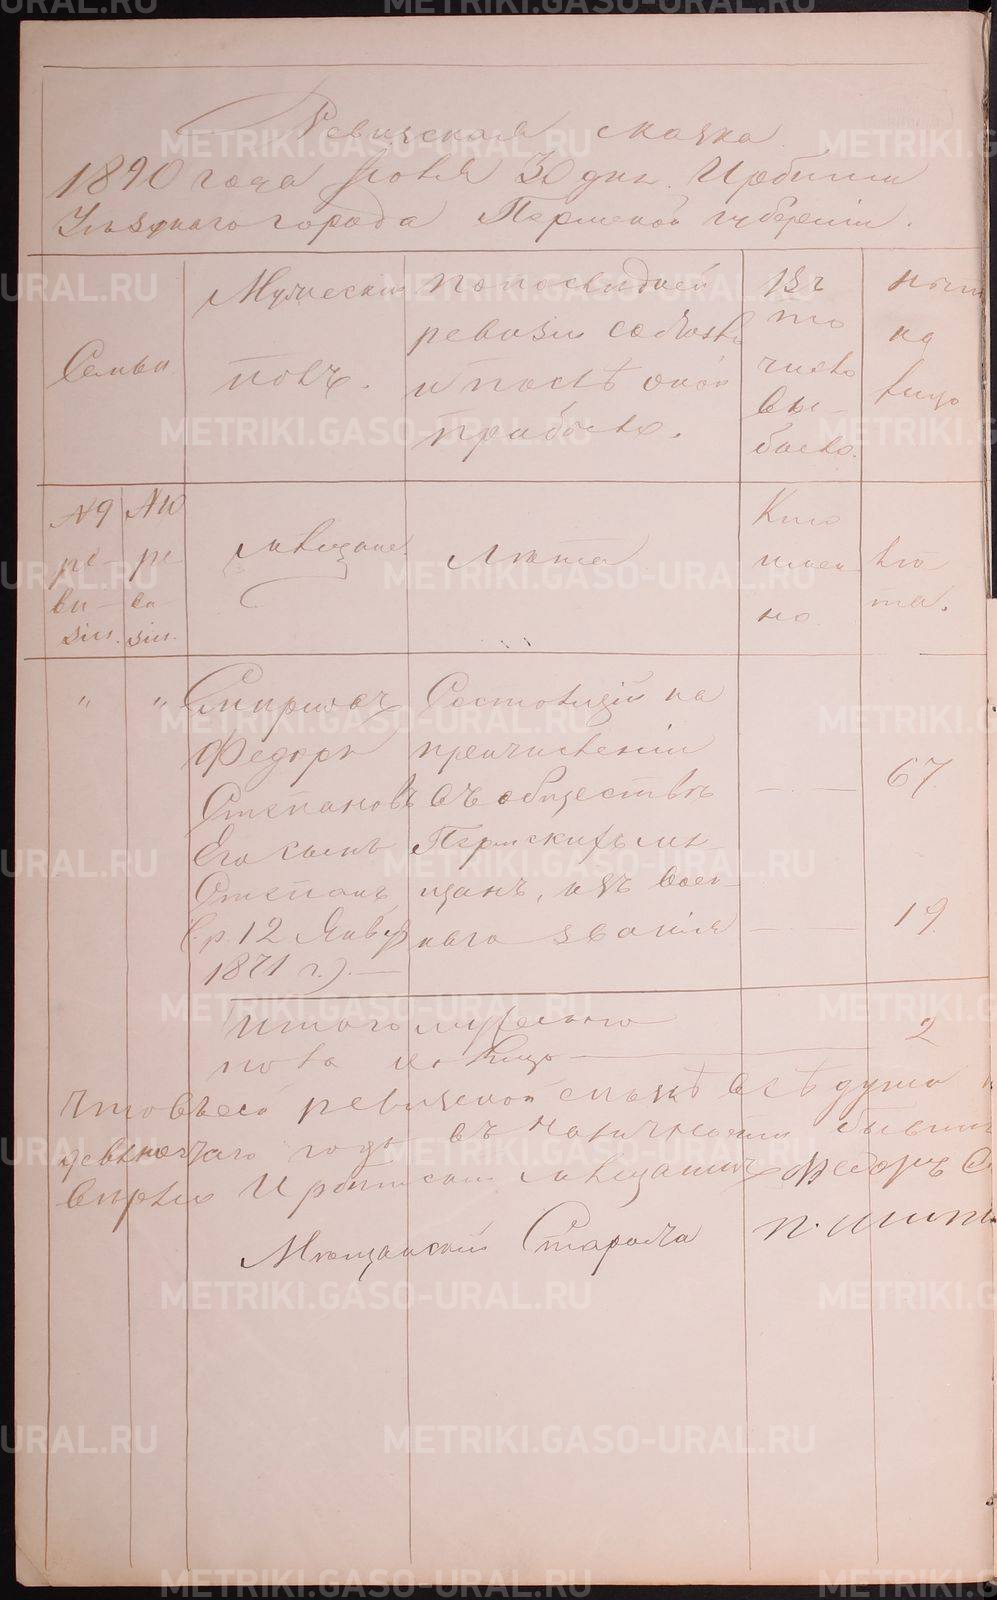 Ревизская сказка
1890 года Июля 30 дня. Ирбити
Уѣзднаго города Пермской губерніи.
Семьи
Мужескій
полъ.
По последней
ревизіи состояло
и послѣ оной
прибыло.
Въ
то
число
вы-
было.
Нынѣ
на
лицо
№ 9
ре-
ви-
зіи.
№ 10
ре-
ви-
зіи.
мѣщане
Лѣта
Кто
имен
но
лѣ
та.
" " Смирновъ
Федоръ
Степановъ
Его сынъ
Степанъ
(р. 12 Янв.
1871 г.).—
Состоящій на
причисленіи
въ общество
Пермскихъ мѣ
щанъ, изъ воен-
наго званія
67
19
Итого мужескаго
пола на лицо 2
Что въ сей ревизской сказкѣ всѣ души
девяностаго года въ наличности
вѣрны Ирбитскій мѣщанинъ Федоръ
Мѣщанскій Староста П.
METRIKI.GASO-URAL.RU